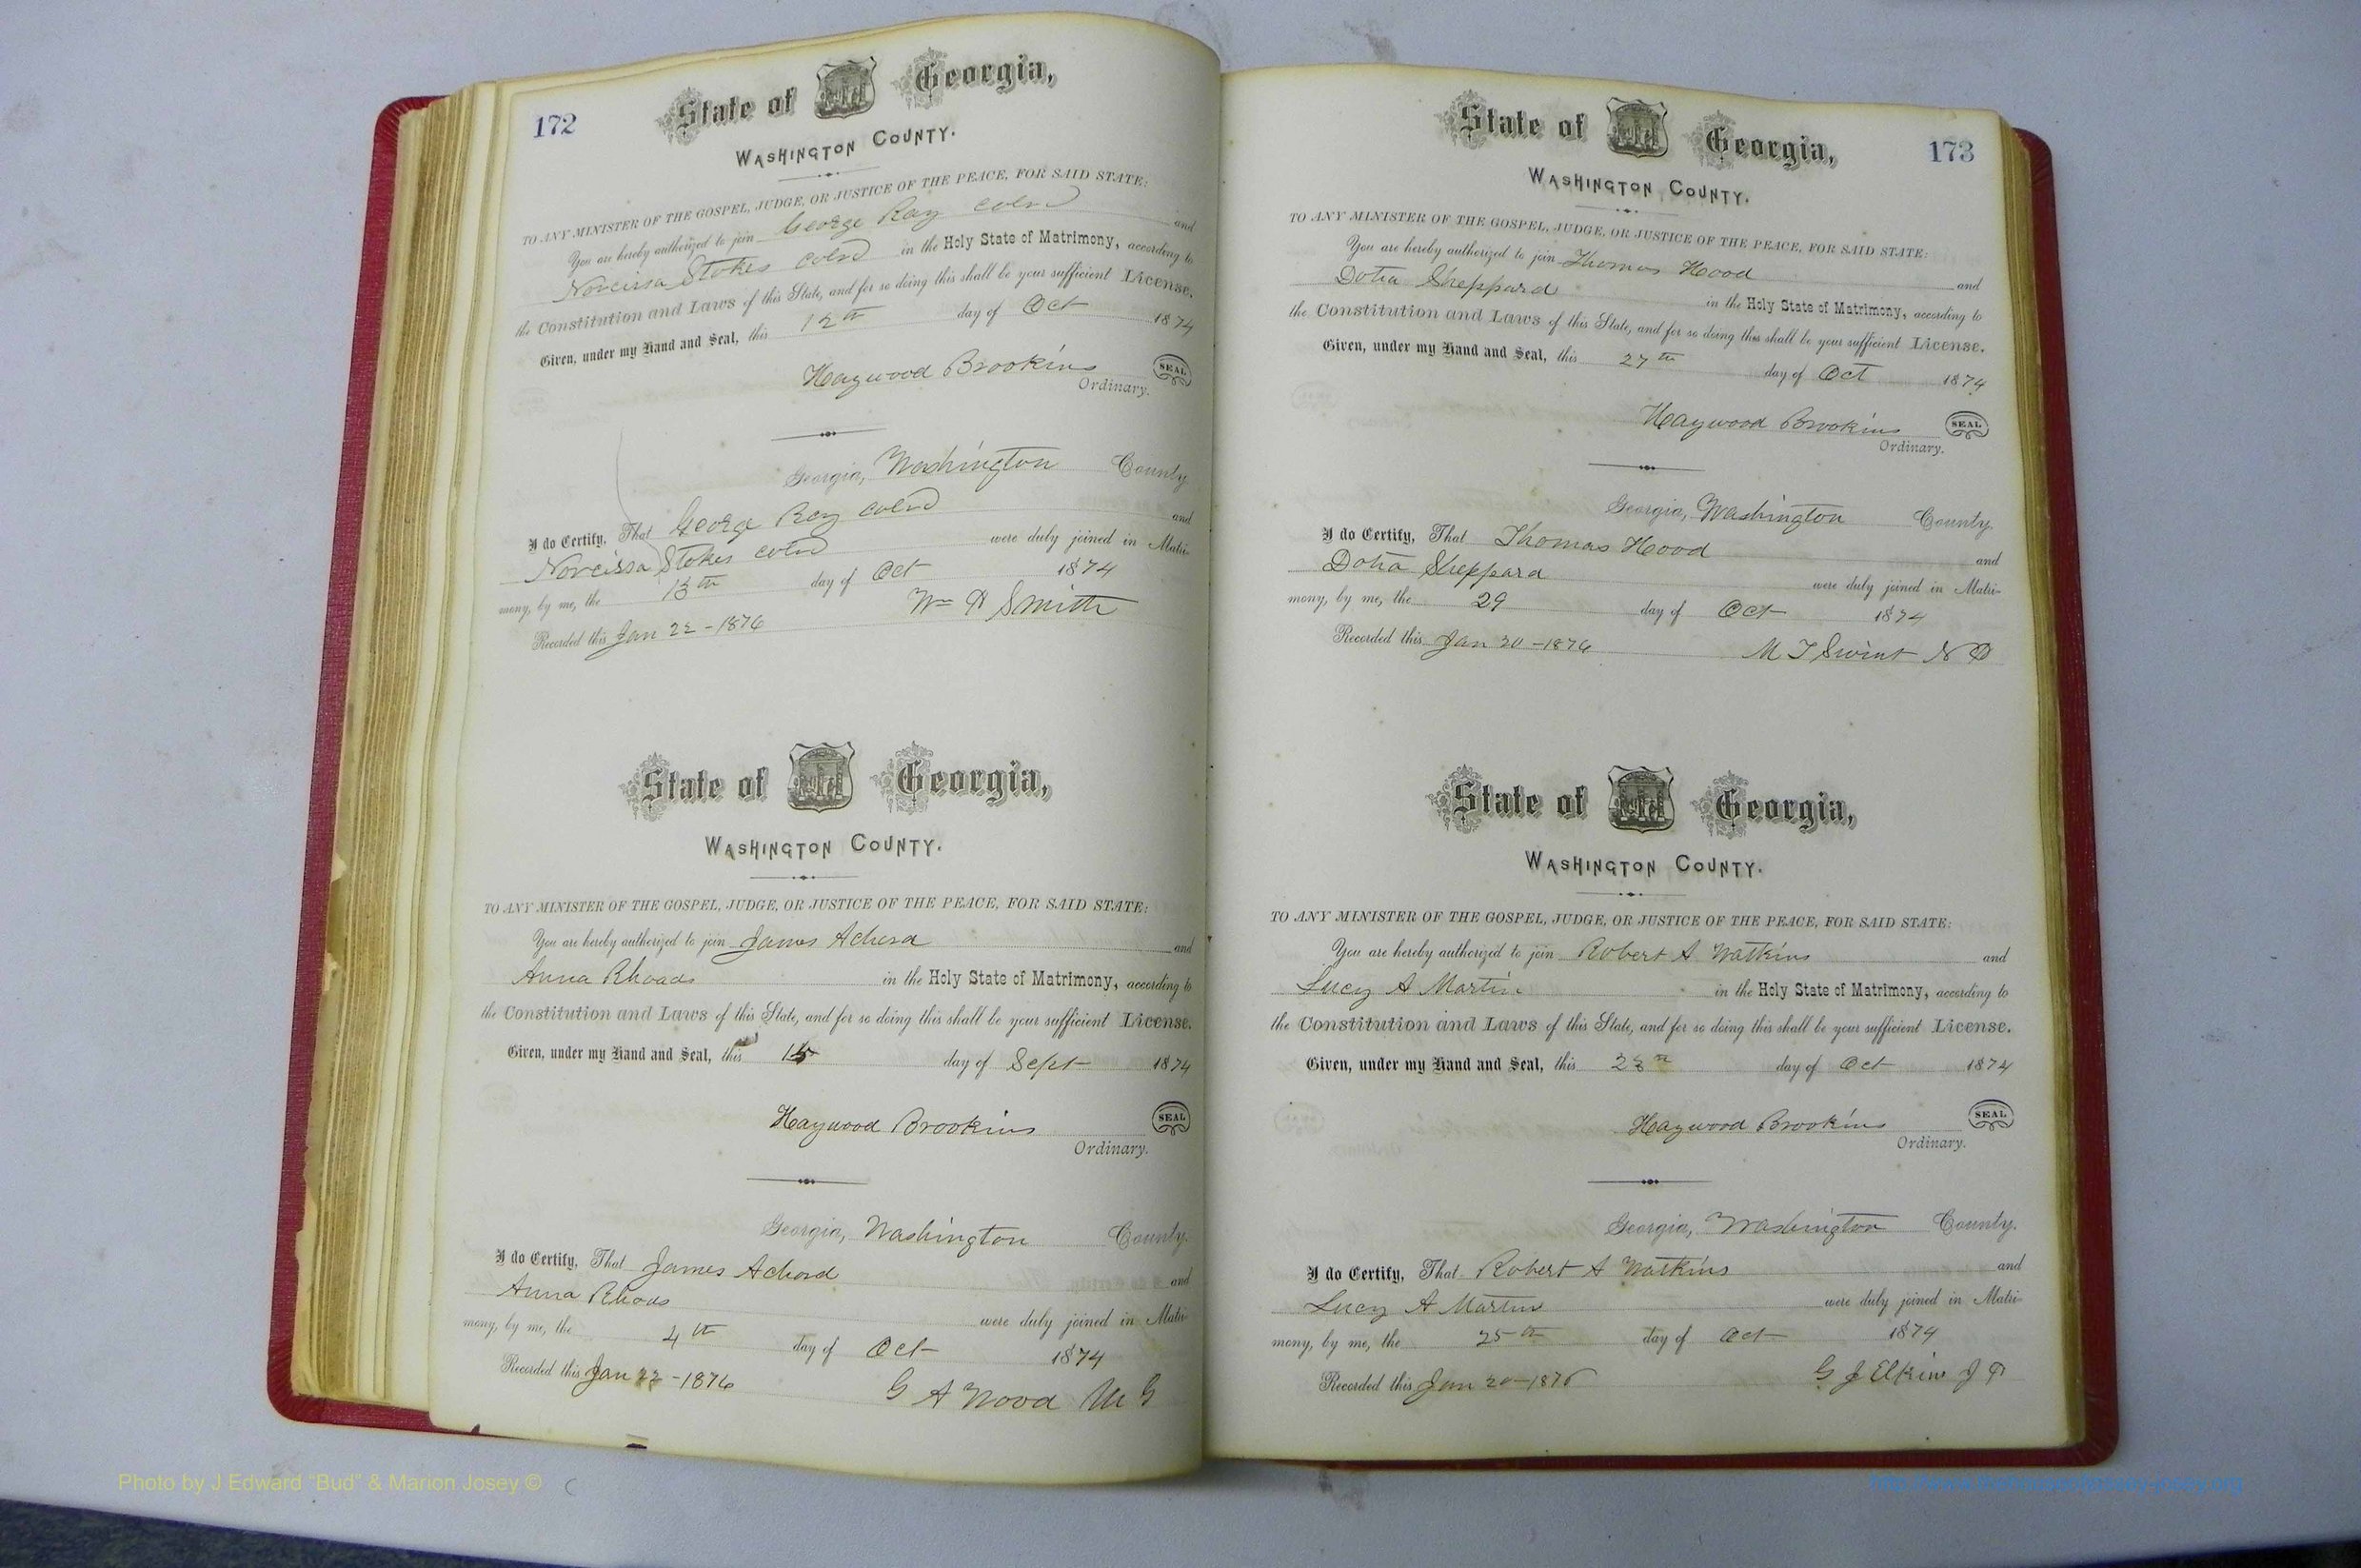 172
State of Georgia,
WASHINGTON COUNTY.
TO ANY MINISTER OF THE GOSPEL, JUDGE, OR JUSTICE OF THE PEACE, FOR SAID STATE:
You are hereby authorized to join George Ray cold and
Norcissa Stokes cold in the Holy State of Matrimony, according to
the Constitution and Laws of this State, and for so doing this shall be your sufficient License.
Given, under my Hand and Seal, this 12th day of Oct 1874
Haywood Brookins SEAL
Ordinary.
Georgia, Washington County
I do Certify, That George Ray cold and
Norcissa Stokes cold were duly joined in Matri-
mony, by me, the 13th day of Oct 1874
Recorded this Jan 22 - 1876 Wm H Smith
State of Georgia,
WASHINGTON COUNTY.
TO ANY MINISTER OF THE GOSPEL, JUDGE, OR JUSTICE OF THE PEACE, FOR SAID STATE:
You are hereby authorized to join James Achord and
Anna Rhoads in the Holy State of Matrimony, according to
the Constitution and Laws of this State, and for so doing this shall be your sufficient License.
Given, under my Hand and Seal, this 15 day of Sept 1874
Haywood Brookins SEAL
Ordinary.
Georgia, Washington County.
I do Certify, That James Achord and
Anna Rhoads were duly joined in Matri-
mony, by me, the 4th day of Oct 1874
Recorded this Jan 22 - 1876 G A Wood M G
173
State of Georgia,
WASHINGTON COUNTY.
TO ANY MINISTER OF THE GOSPEL, JUDGE, OR JUSTICE OF THE PEACE, FOR SAID STATE:
You are hereby authorized to join Thomas Hood and
Dotia Sheppard in the Holy State of Matrimony, according to
the Constitution and Laws of this State, and for so doing this shall be your sufficient License.
Given, under my Hand and Seal, this 27th day of Oct 1874
Haywood Brookins SEAL
Ordinary.
Georgia, Washington County.
I do Certify, That Thomas Hood and
Dotia Sheppard were duly joined in Matri-
mony, by me, the 29 day of Oct 1874
Recorded this Jan 20 - 1876 M J Swint N P
State of Georgia,
WASHINGTON COUNTY.
TO ANY MINISTER OF THE GOSPEL, JUDGE, OR JUSTICE OF THE PEACE, FOR SAID STATE:
You are hereby authorized to join Robert A Watkins and
Lucy A Martin in the Holy State of Matrimony, according to
the Constitution and Laws of this State, and for so doing this shall be your sufficient License.
Given, under my Hand and Seal, this day of Oct 1874
Haywood Brookins SEAL
Ordinary.
Georgia, Washington County.
I do Certify, That Robert A Watkins and
Lucy A Martin were duly joined in Matri-
mony, by me, the 25th day of Oct 1874
Recorded this Jan 20 - 1876 G J Elkins J P
Photo by J Edward "Bud" & Marion Josey ©